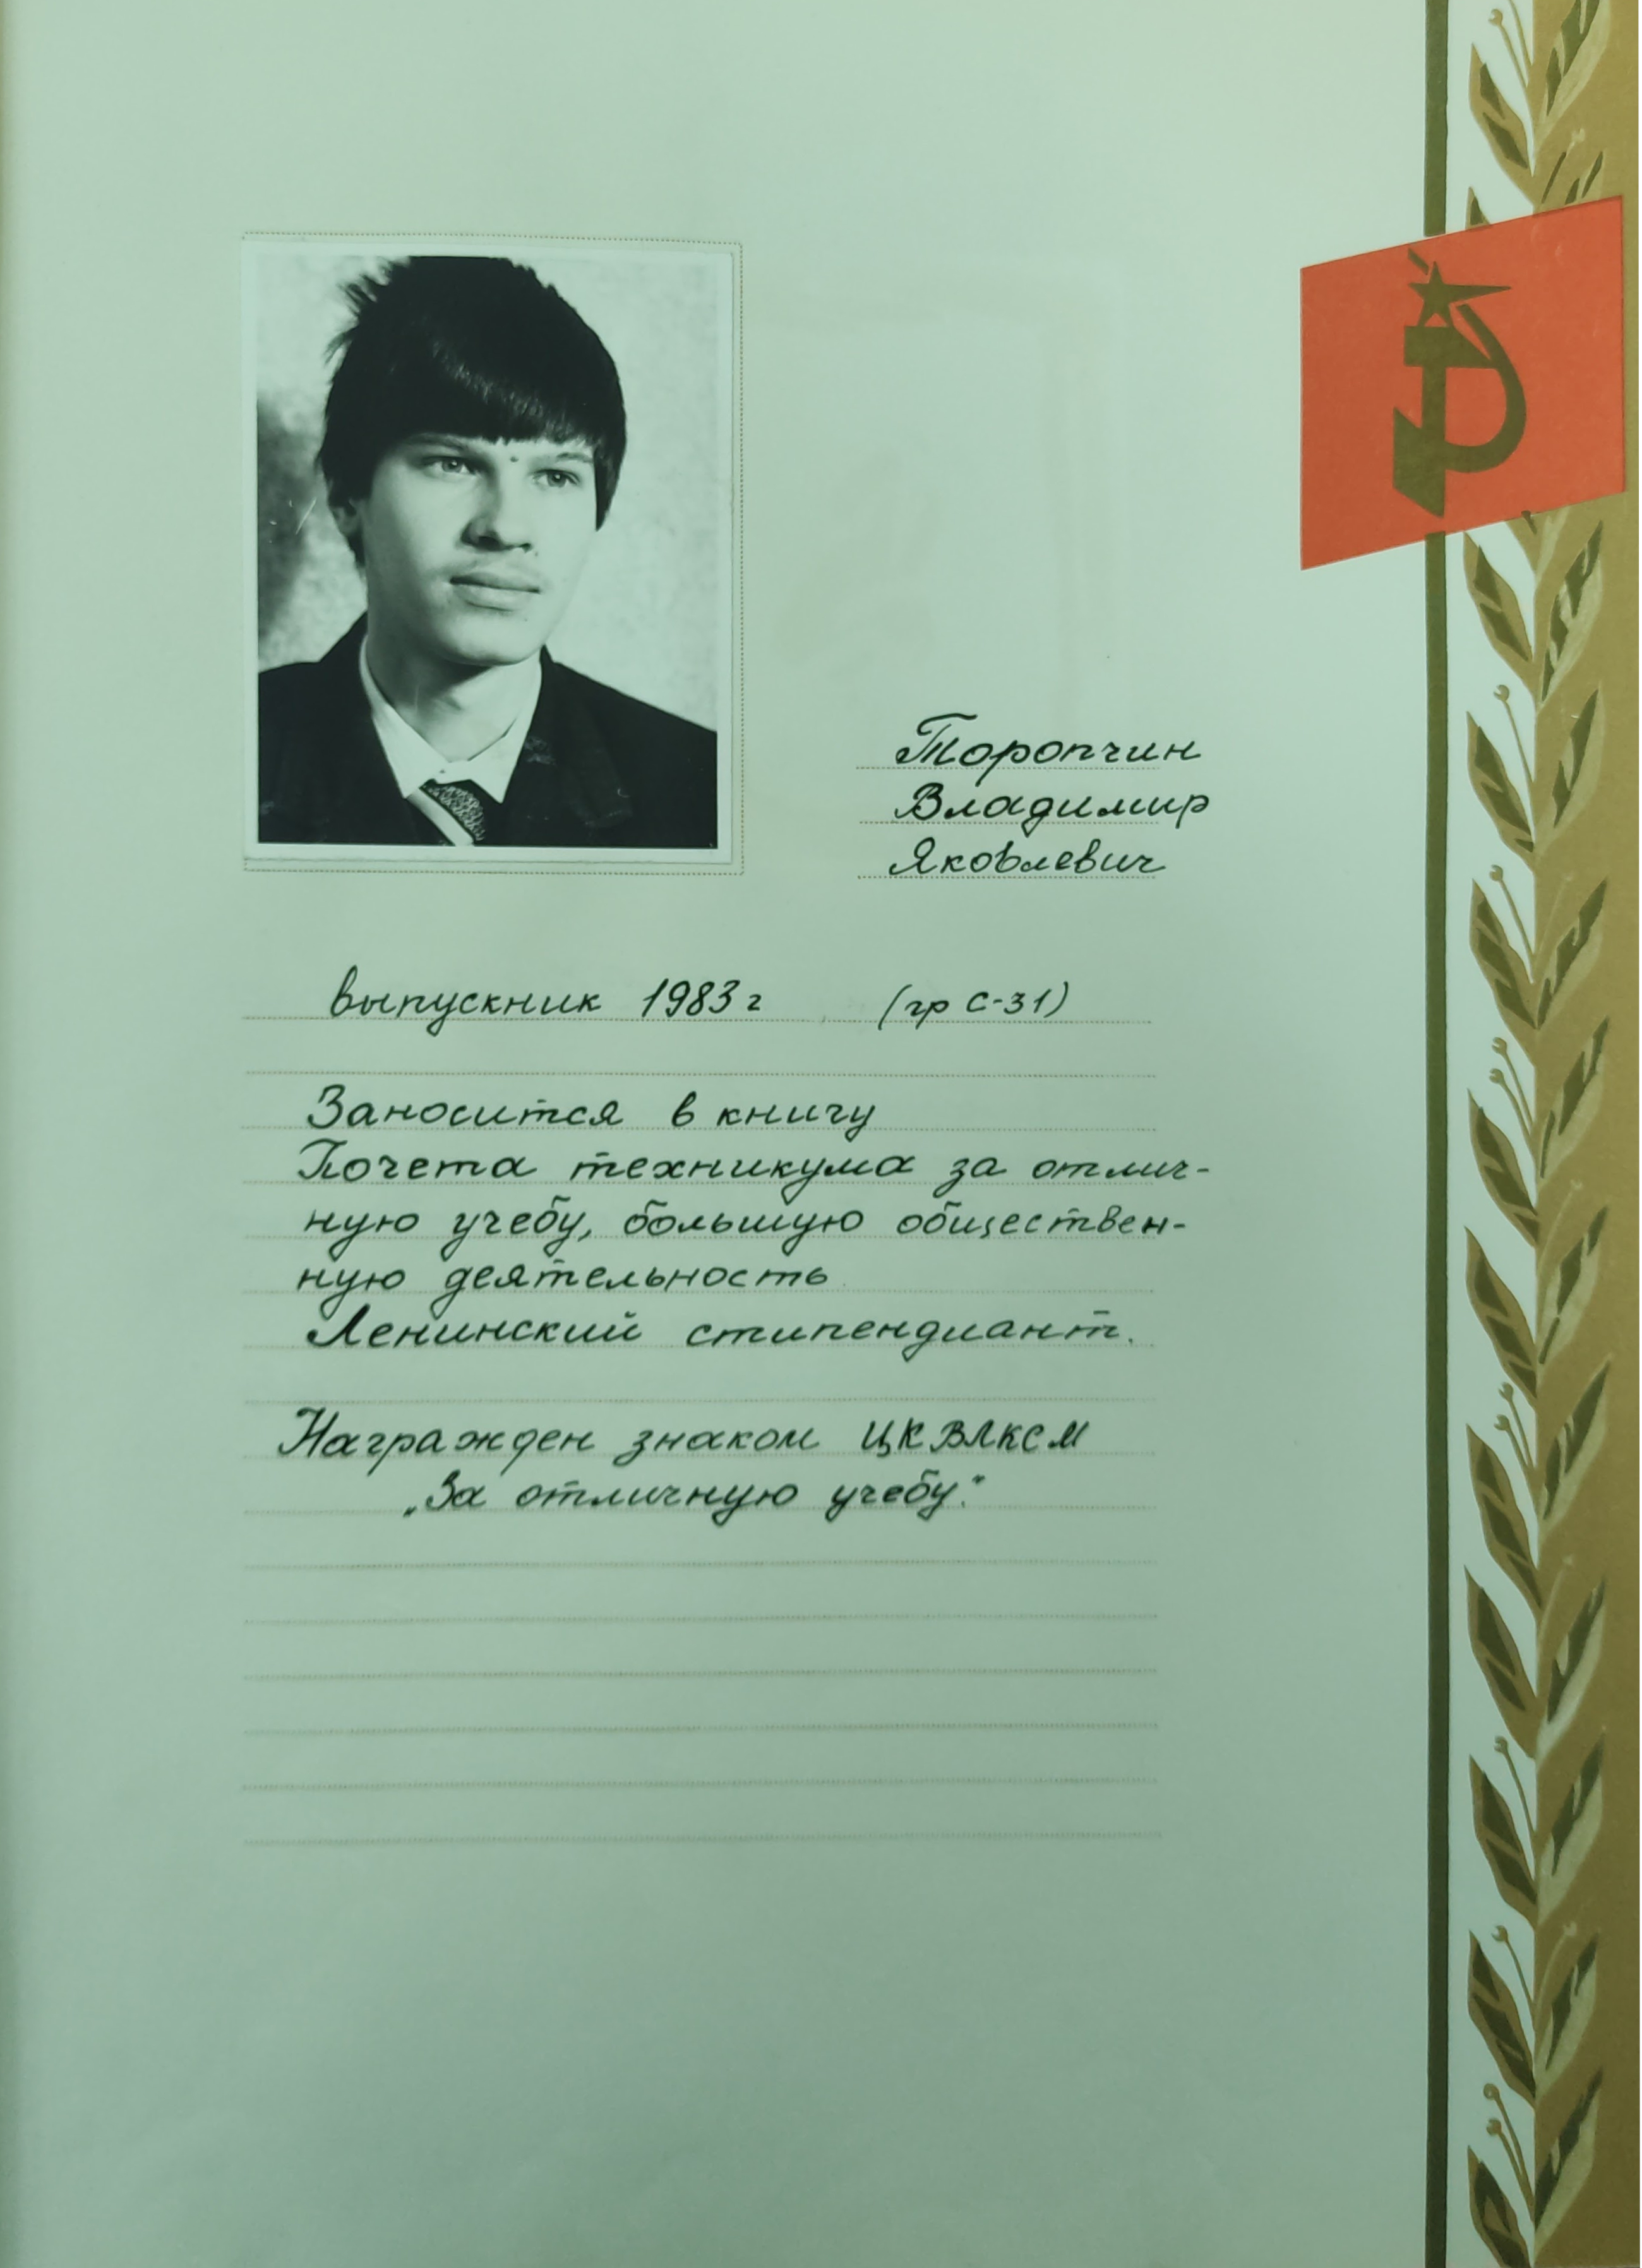 Торопчин
Владимир
Яковлевич
выпускник 1983 г (гр С-31)
Заносится в книгу
Почета техникума за отлич-
ную учебу, большую обществен-
ную деятельность
Ленинский стипендиант.
Награжден знаком ЦК ВЛКСМ
„За отличную учебу."